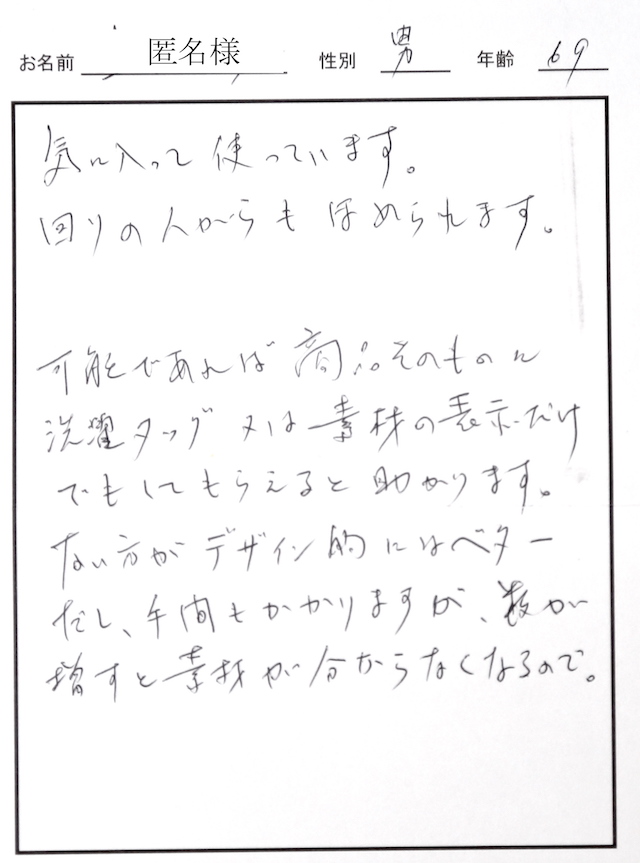 お名前 匿名様 性別 男 年齢 69
気に入って使っています。
回りの人からも ほめられます。
可能であれば 商品そのものに
洗濯タッグ 又は 素材の表示だけ
でもしてもらえると助かります。
ない方がデザイン的にはベター
だし、手間もかかりますが、数が
増すと素材が分からなくなるので。